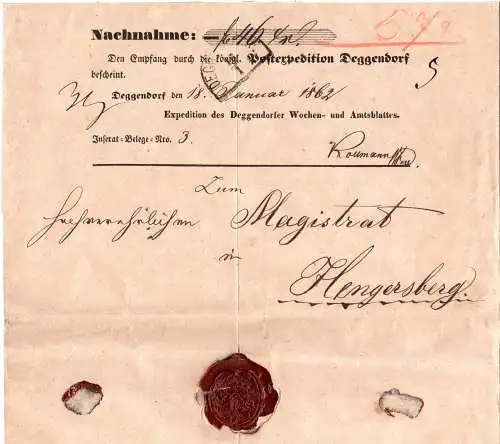 Nachnahme: f 46 kr.
57
Den Empfang durch die königl. Postexpedition Deggendorf
bescheint.
5
Deggendorf den 18. Januar 1862
Expedition des Deggendorfer Wochen- und Amtsblattes.
Inserat-Belege-Nro. 3.
Zum
Magistrat
in
Hengersberg.